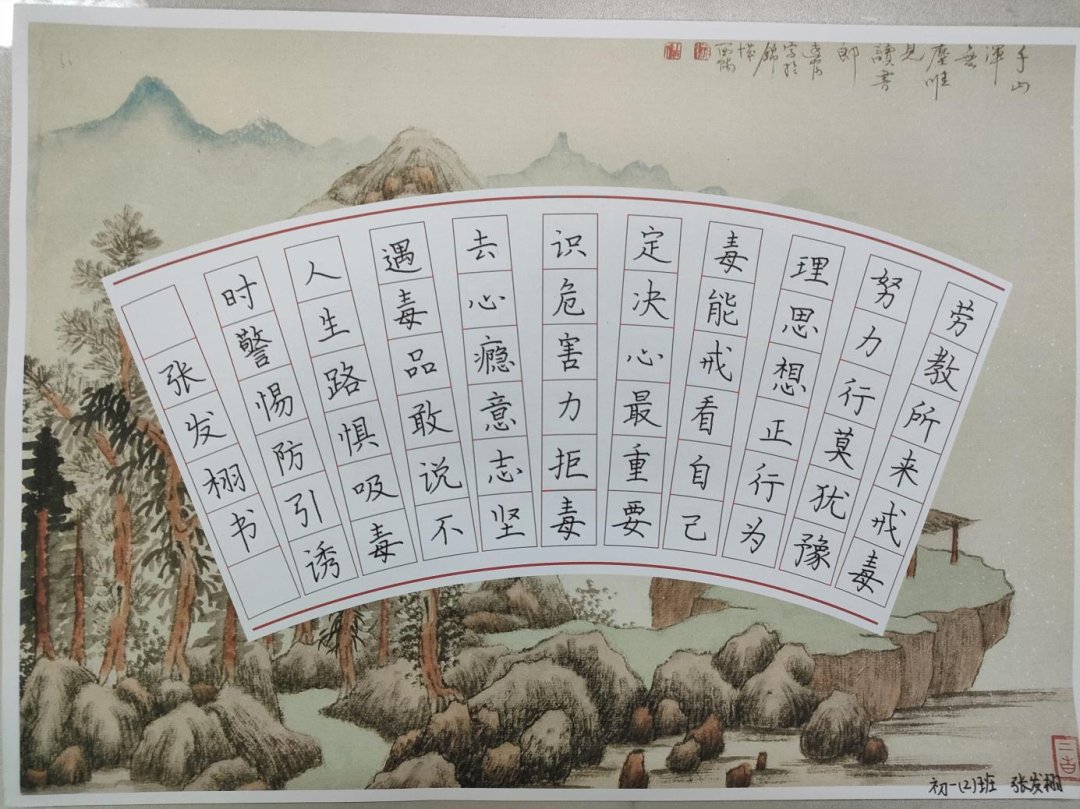 劳教所来戒毒
努力行莫犹豫
理思想正行为
毒能戒看自己
定决心最重要
识危害力拒毒
去心瘾意志坚
遇毒品敢说不
人生路惧吸毒
时警惕防引诱
张发栩书
千山
浑
无
尘唯
见
读书
郎
初一(2)班 张发栩